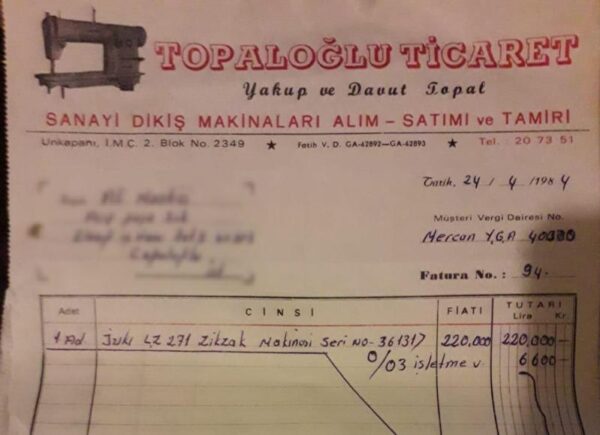 TOPALOĞLU TİCARET
Yakup ve Davut Topal
SANAYİ DİKİŞ MAKİNALARI ALIM – SATIMI ve TAMİRİ
Unkapanı, İ.M.Ç. 2. Blok No. 2349 ★ Fatih V. D. GA-62892—GA-62893 ★ Tel. : 20 73 51
Tarih, 24 / 4 / 1984
Müşteri Vergi Dairesi No.
Mercan Y.G.A
Fatura No. : 94-
Adet CİNSİ FİATI TUTARI
Lira Kr.
1 Ad. Juki LZ 271 Zikzak Makinesi Seri No- 361317 220,000 220,000-
%03 işletme v. 6600-